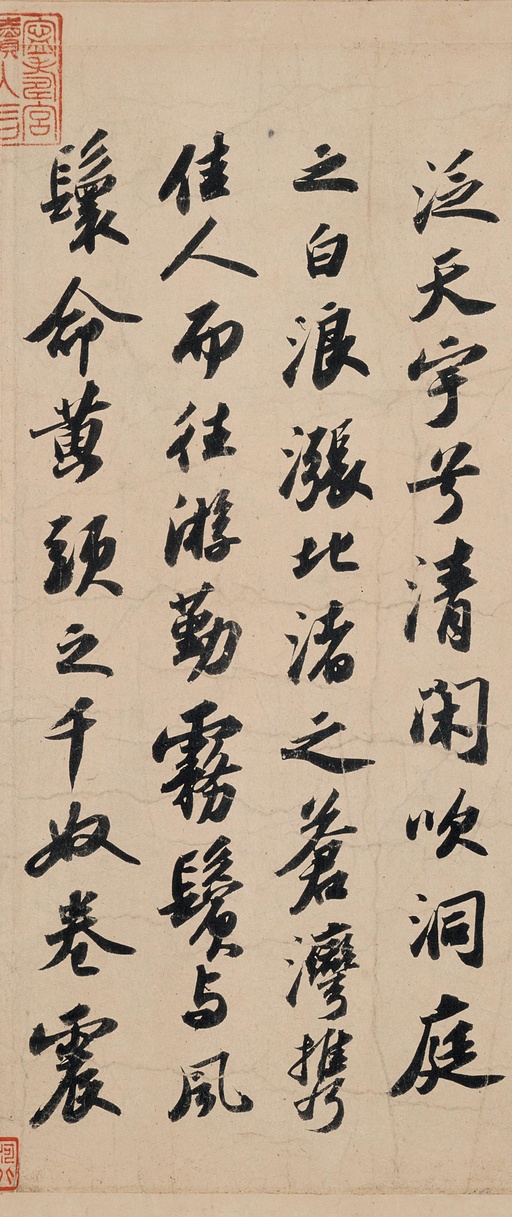 泛天宇兮清閑吹洞庭
之白浪漲北渚之蒼灣攜
佳人而往游勤霧鬢与風
鬟命黄頭之千奴卷震